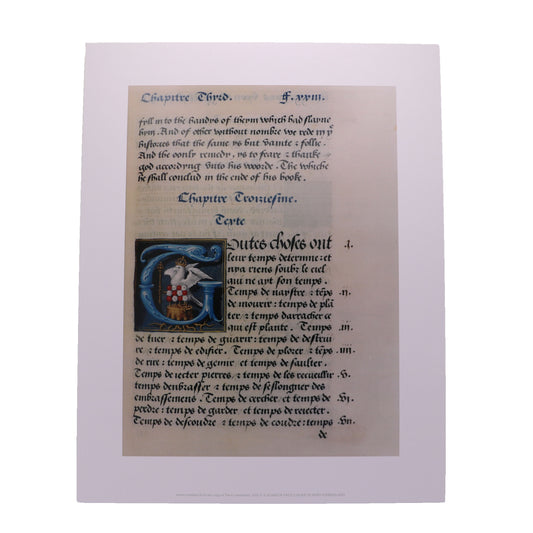 Chapitre Thyrd. ff. xxiii.
fyll in to the handys of theym which had slayne
hym. And of other without nombre we rede in yᵉ
histores that the same ys but vanite & follie.
And the oonly remedy, ys to feare & thanke
god accordyng vnto his woorde. The whiche
he shall conclud in the ende of his booke.
Chapitre Troiziesme.
Texte
Toutes choses ont .i.
leur temps determine: et
nya riens soubz le ciel
qui ne ayt son temps.
Temps de naystre & tēps .ii.
de mourir: temps de plā
ter & temps darracher ce
qui est plante. Temps .iii.
de tuer & temps de guarir: temps de destrui
re & temps de edifier. Temps de plorer & tēps .iiii.
de rire: temps de gemir et temps de saulter.
Temps de iecter pierres & temps de les recueillir .v.
temps denbrasser & temps de seslongner des
embrassemens. Temps de cercher et temps de .vi.
perdre: temps de garder et temps de reiecter.
Temps de descoudre & temps de coudre: temps .vii.
de